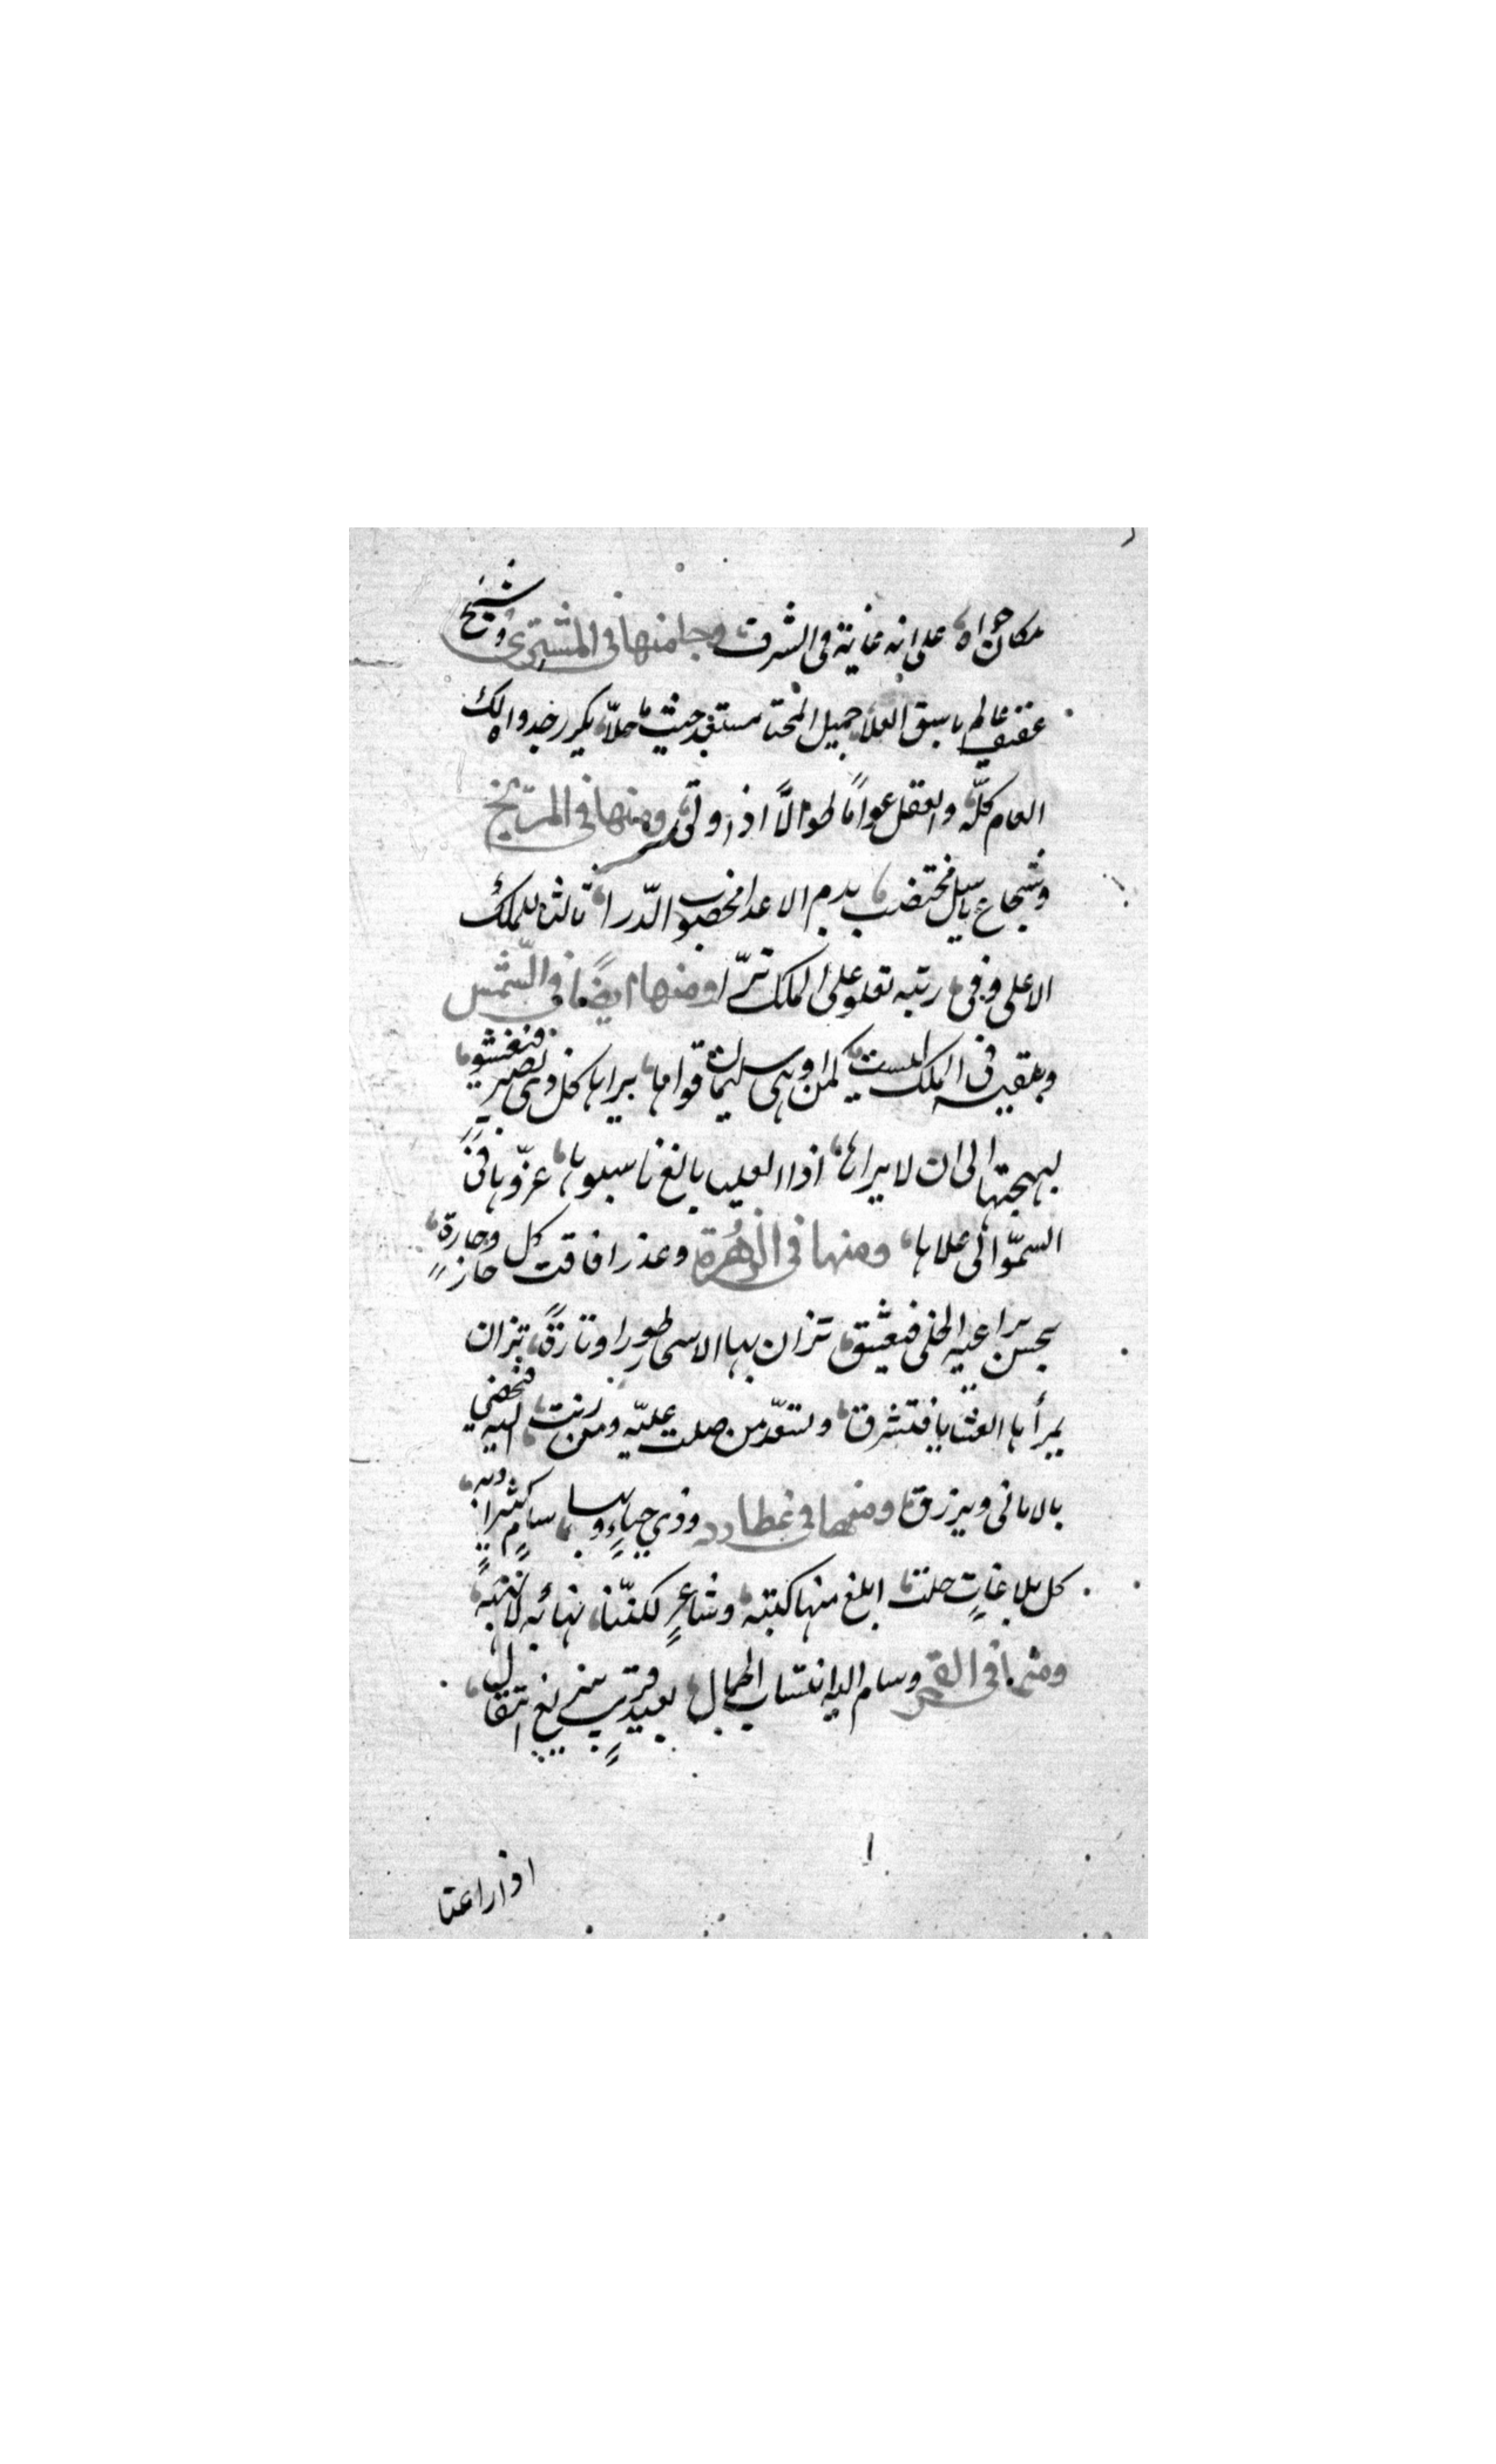 مكان حواه، على انه غاية فى الشرف، وجا منها فى المشترى، وشيخ
عفيف عالم باسق العلا جميل المحيا مستفد حيث ما حلاّ، يكرر جدواه لك
العام كلّه والعقل عواماً طوالاً اذ اولى، ومنها فى المريخ
وشجاع باسل مختضب، بدم الاعدا مخضوب الدّرا، ثالث للملك
الاعلى وفى، رتبه تعلو على الملك ترّا ومنها ايضًا فى الشّمس
وبلقيس فى الملك ليست كمن وهى سليمان قواها، يراها كل ذى بصير فيغشو
لبهجتها الى ان لا يراها، اذا العليا بالغ ناسبوها، عزّوها فى
السموّ الى علاها، ومنها فى الزهُرة وعذرا فاقت كل جارة، وحازت
بحسن يراعيه الخلى فيعشق، تزان بها الاسحار طوراً وتارةً، تزان
بمرأها العشايا فتشرق، وتسعد من صلت عليه ومن رنت، اليه فيحضى
بالامانى ويرزق، ومنها فى عطارد وذي حياءٍ وبها سامٍ كثير الادب،
كل بلاغاتٍ حلت، ابلغ منها كتبه، وشاعرٍ لكفّنا، نهائه لا نتهبه،
ومنها فى القمر وسام اليه انتساب الجمال، بعيد قريب سريع انتقال،
اذا راعنا